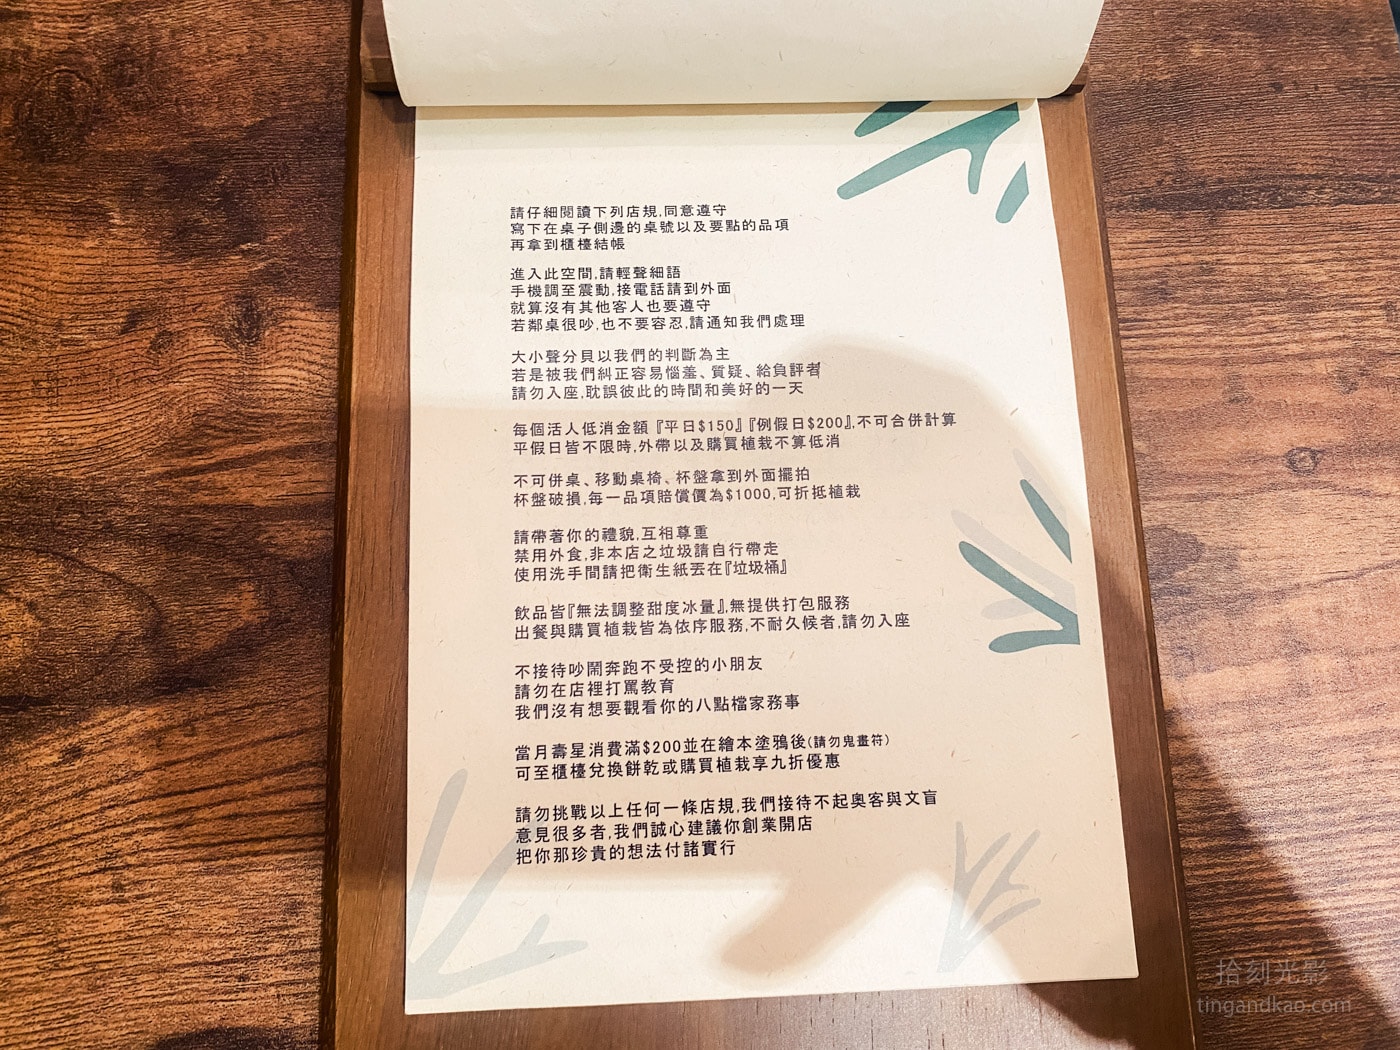 請仔細閱讀下列店規,同意遵守
寫下在桌子側邊的桌號以及要點的品項
再拿到櫃檯結帳
進入此空間,請輕聲細語
手機調至震動,接電話請到外面
就算沒有其他客人也要遵守
若鄰桌很吵,也不要容忍,請通知我們處理
大小聲分貝以我們的判斷為主
若是被我們糾正容易惱羞、質疑、給負評者
請勿入座,耽誤彼此的時間和美好的一天
每個活人低消金額『平日$150』『例假日$200』,不可合併計算
平假日皆不限時,外帶以及購買植栽不算低消
不可併桌、移動桌椅、杯盤拿到外面擺拍
杯盤破損,每一品項賠償價為$1000,可折抵植栽
請帶著你的禮貌,互相尊重
禁用外食,非本店之垃圾請自行帶走
使用洗手間請把衛生紙丟在『垃圾桶』
飲品皆『無法調整甜度冰量』,無提供打包服務
出餐與購買植栽皆為依序服務,不耐久候者,請勿入座
不接待吵鬧奔跑不受控的小朋友
請勿在店裡打罵教育
我們沒有想要觀看你的八點檔家務事
當月壽星消費滿$200並在繪本塗鴉後(請勿鬼畫符)
可至櫃檯兌換餅乾或購買植栽享九折優惠
請勿挑戰以上任何一條店規,我們接待不起奧客與文盲
意見很多者,我們誠心建議你創業開店
把你那珍貴的想法付諸實行
拾刻光影
tingandkao.com